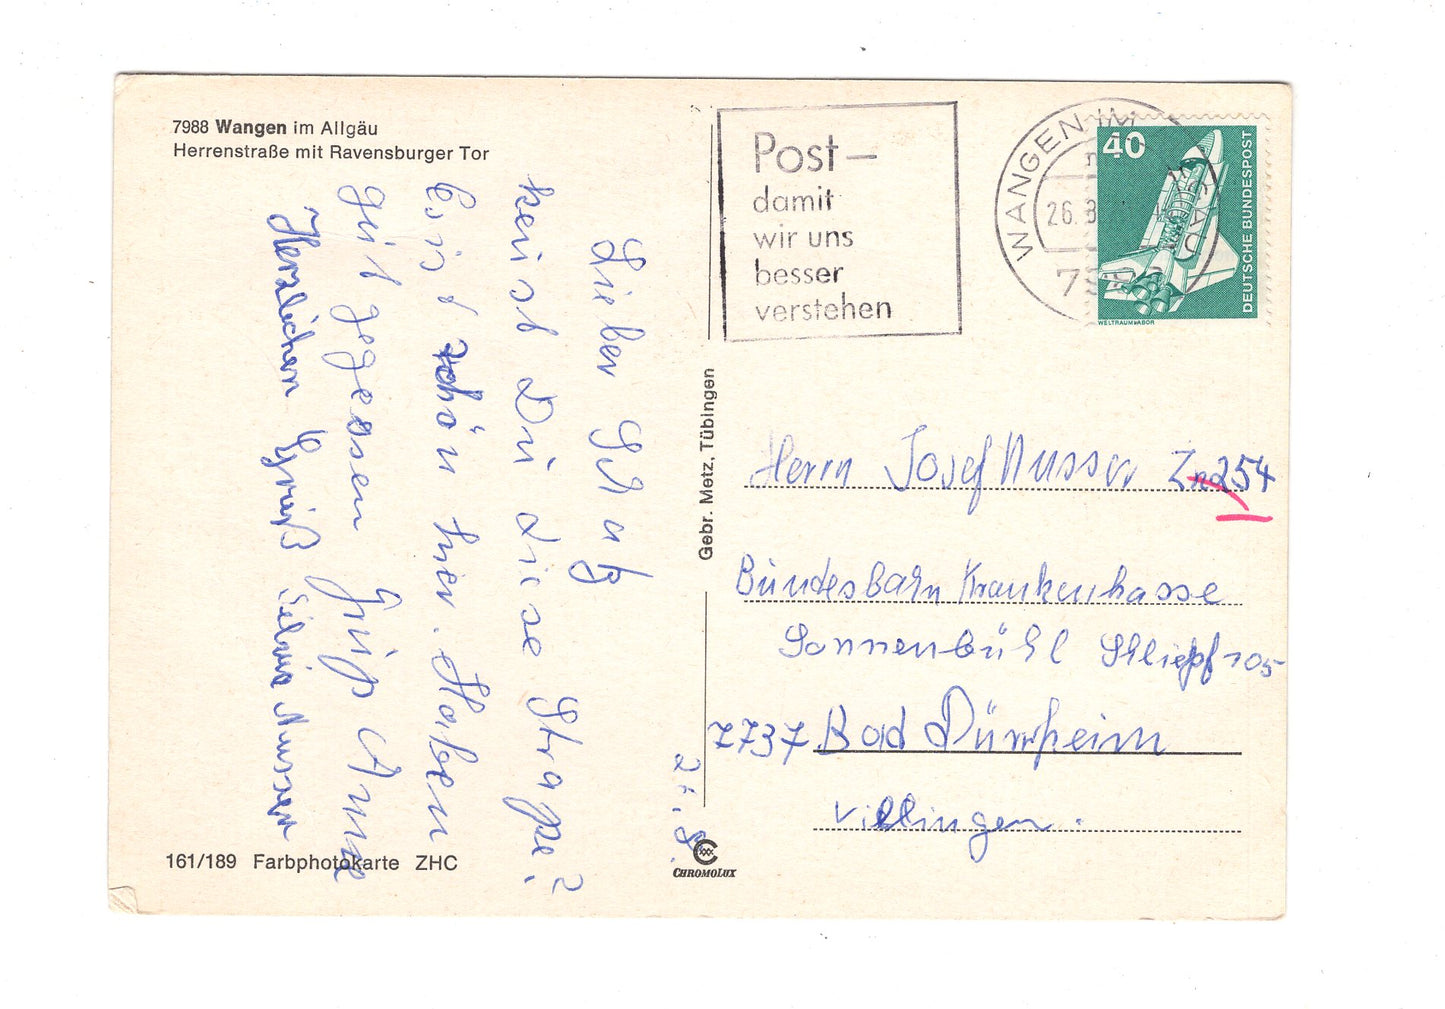 7988 Wangen im Allgäu
Herrenstraße mit Ravensburger Tor
Lieber Schatz
kenst Du diese Straße?
Es ist schön hier. Haben
gut gegessen Gruß Anna
Herzlichen Gruß Silvia Nusser
161/189 Farbphotokarte ZHC
Gebr. Metz, Tübingen
CHROMOLUX
Post –
damit
wir uns
besser
verstehen
WANGEN IM
26.8
40
DEUTSCHE BUNDESPOST
WELTRAUMLABOR
Herrn Josef Nusser 254
Bundesbahn Krankenkasse
Sonnenbühl Schließf 105
7737 Bad Dürrheim
Villingen.